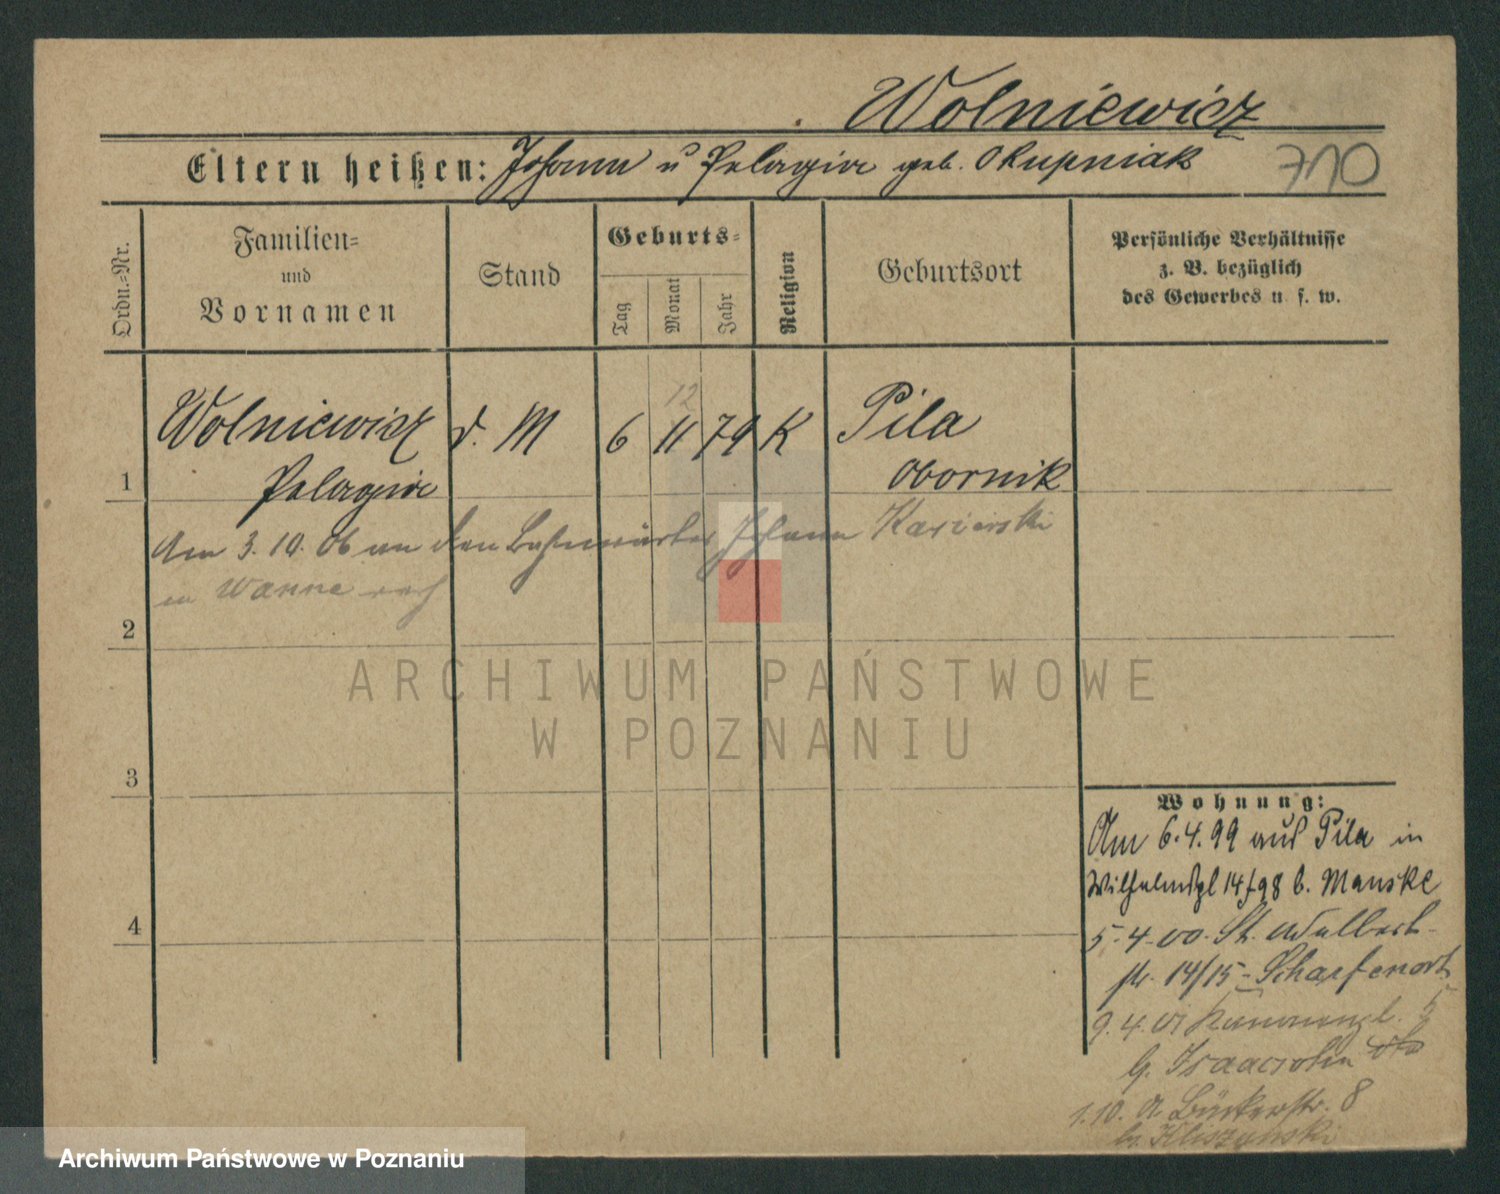 Wolniewicz
Eltern heißen: Johann u Pelagia geb. Okupniak
710
Ordn.-Nr.
Familien-
und
Vornamen
Stand
Geburts-
Tag
Monat
Jahr
Religion
Geburtsort
Persönliche Verhältnisse
z. B. bezüglich
des Gewerbes u. s. w.
12
Wolniewicz d. M 6 11 79 K Pila
1 Pelagia Obornik
Am 3. 10. 06 an den Bahnwärter Johann
in Wanne
2
ARCHIWUM PAŃSTWOWE
W POZNANIU
3
Wohnung:
Am 6.4.99 aus Pila in
Wilhelmspl 14/98 b. Manske
4
5.4.00. St. Adalbert-
str. 14/15 - Scharfenort
9.4.01 5
b. Isaacsohn
1.10. Bäckerstr. 8
b. Kliszynski
Archiwum Państwowe w Poznaniu